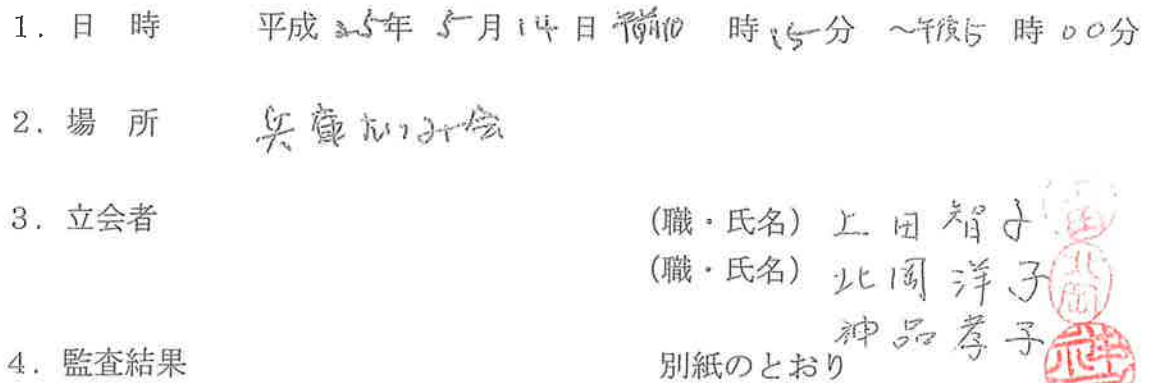 1. 日 時 平成 25年 5月 14日 午前10 時 15分 ～午後5 時 00分
2. 場 所 兵庫たつみ会
3. 立会者 (職・氏名) 上田智子
(職・氏名) 北岡洋子
北岡
神品孝子
4. 監査結果 別紙のとおり